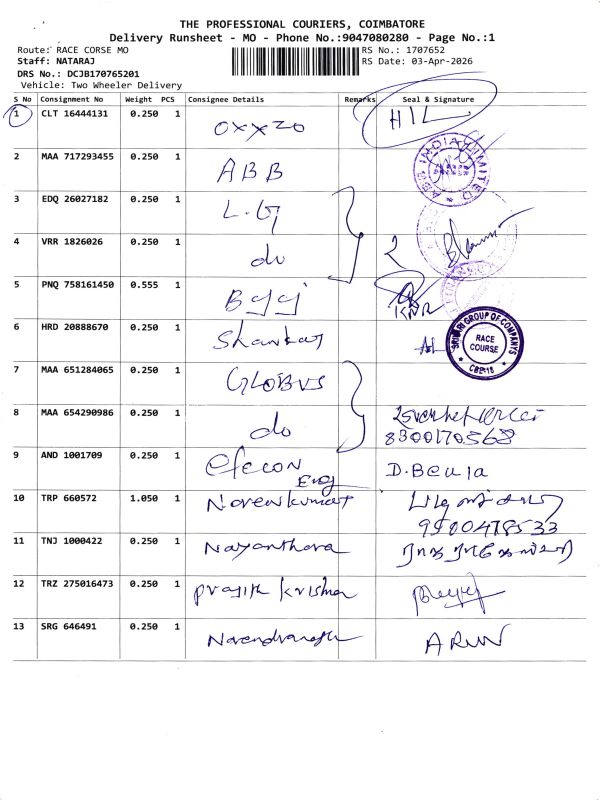 THE PROFESSIONAL COURIERS, COIMBATORE
Delivery Runsheet - MO - Phone No.:9047080280 - Page No.:1
Route: RACE CORSE MO
RS No.: 1707652
Staff: NATARAJ
RS Date: 03-Apr-2026
DRS No.: DCJB170765201
Vehicle: Two Wheeler Delivery
S No Consignment No Weight PCS Consignee Details Remarks Seal & Signature
1 CLT 16444131 0.250 1 OXXZO HIL
2 MAA 717293455 0.250 1 ABB
ABB INDIA LIMITED
3 EDQ 26027182 0.250 1 L.G
4 VRR 1826026 0.250 1 do 2
5 PNQ 758161450 0.555 1 Bajaj
KNR
6 HRD 20888670 0.250 1 Shankar
GROUP OF COMPANYS
RACE
COURSE
CBE-18
7 MAA 651284065 0.250 1 GLOBUS
8 MAA 654290986 0.250 1 do
8300170568
9 AND 1001709 0.250 1 efecon Eng D.Beula
10 TRP 660572 1.050 1 Naveenkumar
9900478533
11 TNJ 1000422 0.250 1 Nayanthara
12 TRZ 275016473 0.250 1 Prajith Krishna
13 SRG 646491 0.250 1 Narendranath ARUN